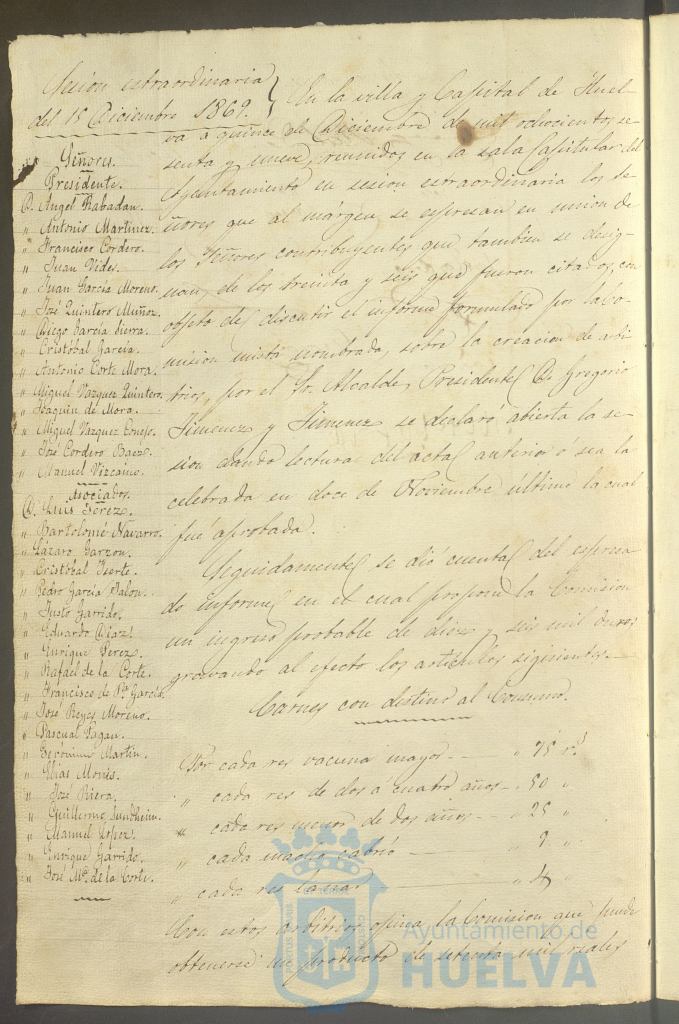 Sesion estraordinaria
del 15 Diciembre 1869.
Señores.
Presidente.
D. Angel Rabadan.
" Antonio Martinez.
" Francisco Cordero.
" Juan Vides.
" Juan Garcia Moreno.
" José Quintero Muñoz.
" Diego Garcia Sierra.
" Cristóbal Garcia.
" Antonio Corte Mora.
" Miguel Vazquez Quintero.
" Joaquin de Mora.
" Miguel Vazquez Conejo.
" José Cordero Baez.
" Manuel Vizcaino.
Asociados.
D. Luis Perez.
" Bartolomé Navarro.
" Lázaro Garzon.
" Cristóbal Iserte.
" Pedro Garcia Jalon.
" Justo Garrido.
" Eduardo Diaz.
" Enrique Perez.
" Rafael de la Corte.
" Francisco de Pla Garcia.
" José Reyes Moreno.
" Pascual Pagan.
" Gerónimo Martin.
" Elias Monis.
" José Riera.
" Guillermo Sundheim.
" Manuel Lopez.
" Enrique Garrido.
" José Mª. de la Corte.
En la villa y Capital de Huel-
va á quince de Diciembre de mil ochocientos se-
senta y nueve, reunidos en la sala Capitular del
Ayuntamiento en sesion estraordinaria los Se-
ñores que al márgen se espresan en union de
los Señores contribuyentes que tambien se desig-
nan, de los treinta y seis que fueron citados, con
objeto de discutir el informe formulado por la Co-
mision mista nombrada, sobre la creacion de arbi-
trios, por el Sr. Alcalde Presidente D. Gregorio
Jimenez y Jimenez se declaró abierta la se-
sion dando lectura del acta anterior ó sea la
celebrada en doce de Noviembre último la cual
fué aprobada.
Seguidamente se dió cuenta del espresa-
do informe en el cual propone la Comision
un ingreso probable de diez y seis mil duros
gravando al efecto los artículos siguientes.
Carnes con destino al Consumo.
Por cada res vacuna mayor " 75 rs
" cada res de dos á cuatro años " 50 "
" cada res menor de dos años " 25 "
" cada macho cabrio " 9 "
" cada res lanar " 4 "
Con estos arbitrios opina la Comision que puede
obtenerse un producto de setenta mil reales
Ayuntamiento de
HUELVA